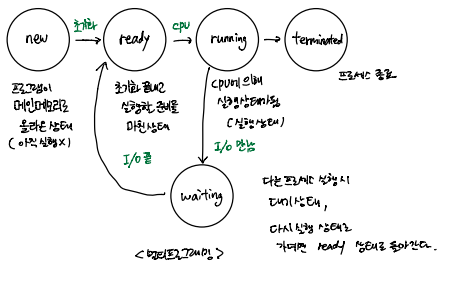 new
초기화
ready
CPU
running
terminated
프로그램이
메인메모리로
올라온 상태
(아직 실행X)
초기화 끝내고
실행할 준비를
마친 상태
CPU에 의해
실행상태가 됨
(실행상태)
프로세스 종료
I/O 끝
I/O 만남
waiting
다른 프로세스 실행 시
대기 상태,
다시 실행 상태로
가려면 ready 상태로 돌아간다.
<멀티프로그래밍>